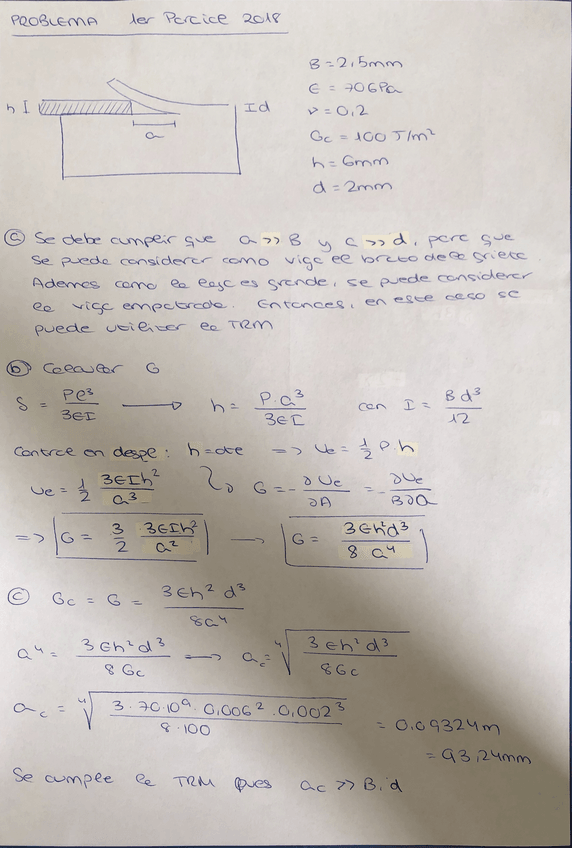 PROBLEMA 1er Parcial 2018
B = 2,5mm
E = 70GPa
ν = 0,2
Gc = 100 J/m²
h = 6mm
d = 2mm
h I
I d
a
ⓐ Se debe cumplir que a >> B y a >> d, para que
se pueda considerar como viga el brazo de la grieta.
Además como la base es grande, se puede considerar
la viga empotrada. Entonces, en este caso se
puede utilizar la TRM
ⓑ Calcular G
δ = Pl³/3EI → h = P·a³/3EI con I = Bd³/12
Control en despl: h = cte => Ue = 1/2 P·h
Ue = 1/2 3EIh²/a³ G = -∂Ue/∂A = -∂Ue/B∂a
=> G = 3/2 3EIh²/a² → G = 3Eh²d³/8a⁴
ⓒ Gc = G = 3Eh²d³/8a⁴
a⁴ = 3Eh²d³/8Gc → ac = ⁴√(3Eh²d³/8Gc)
ac = ⁴√(3·70·10⁹·0,006²·0,002³/8·100) = 0,09324m
= 93,24mm
Se cumple la TRM pues ac >> B, d